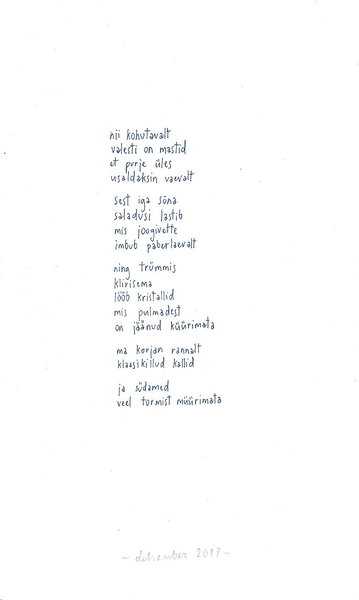 nii kohutavalt
valesti on mastid
et purje üles
usaldaksin vaevalt
sest iga sõna
saladusi lastib
mis joogivette
imbub paberlaevalt
ning trümmis
klirisema
lööb kristallid
mis pulmadest
on jäänud küürimata
ma korjan rannalt
klaasikillud kallid
ja südamed
veel tormist müürimata
- detsember 2017 -